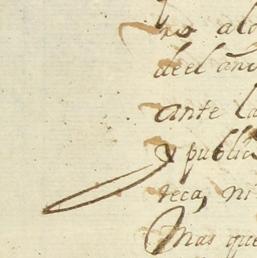 no alo
deel año
ante la
y public
teca, ni
Mas que